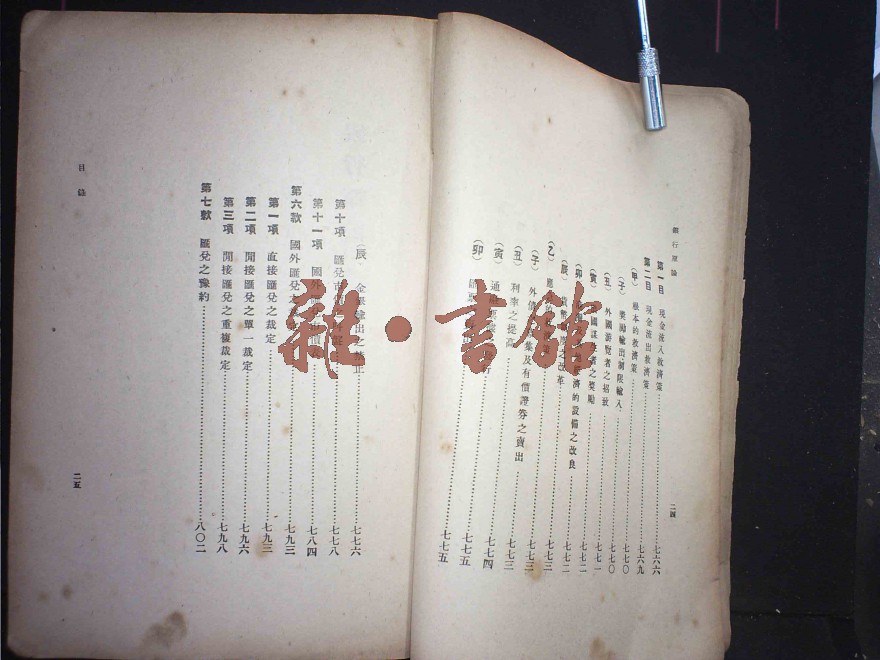 銀行原論
第一目 現金流入救濟策 七六六
第二目 現金流出救濟策 七六九
(甲) 根本的救濟策 七七〇
(子) 獎勵輸出制限輸入 七七〇
(丑) 外國游覽者之招致 七七一
(寅) 國謀 者之獎勵 七七二
(卯) 濟的設備之改良 七七二
(辰) 貨幣 之改革 七七三
(乙) 應 七七三
(子) 外債 集及有價證券之賣出 七七三
(丑) 利率之提高 七七三
(寅) 通 七七四
(卯) 七七五
七七五
二四
(辰) 金 輸出 禁止 七七六
第十項 匯兌市 七七八
第十一項 國外匯 七八四
第六款 國外匯兌之 定 七九三
第一項 直接匯兌之裁定 七九三
第二項 間接匯兌之單一裁定 七九六
第三項 間接匯兌之重複裁定 七九八
第七款 匯兌之豫約 八〇二
目錄
二五
雜·書館